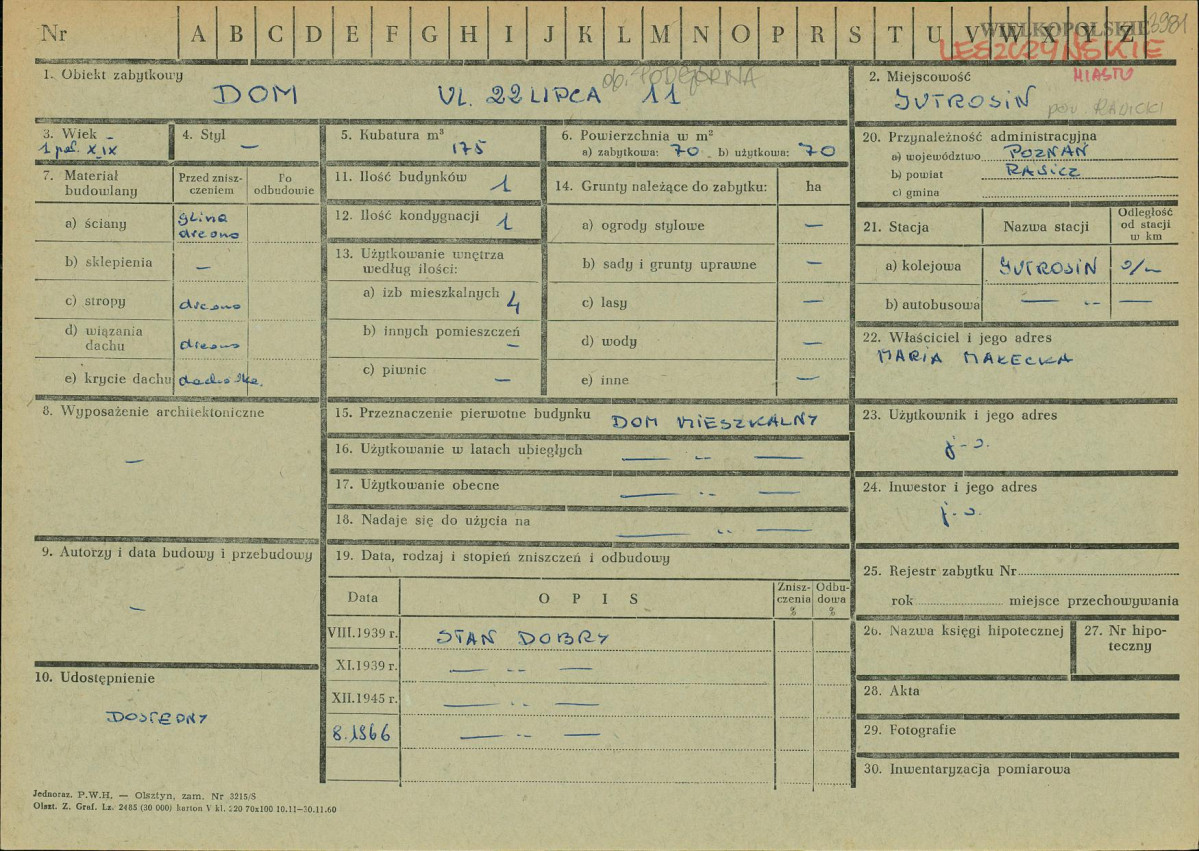 Nr A B C D E F G H I J K L M N O P R S T U V W X Y Z
WIELKOPOLSKIE 3981
LESZCZYŃSKIE
MIASTO
1. Obiekt zabytkowy
ob. PODGÓRNA
DOM UL. 22 LIPCA 11
2. Miejscowość
JUTROSIN
pow.
3. Wiek
1 poł. XIX
4. Styl
—
5. Kubatura m³
175
6. Powierzchnia w m²
a) zabytkowa: 70 b) użytkowa: 70
20. Przynależność administracyjna
a) województwo POZNAŃ
b) powiat RAWICZ
c) gmina
7. Materiał budowlany
Przed znisz-
czeniem
Po
odbudowie
a) ściany
glina
drewno
b) sklepienia —
c) stropy drewno
d) wiązania
dachu drewno
e) krycie dachu dachówka.
11. Ilość budynków 1
12. Ilość kondygnacji 1
13. Użytkowanie wnętrza
według ilości:
a) izb mieszkalnych 4
b) innych pomieszczeń —
c) piwnic —
14. Grunty należące do zabytku: ha
a) ogrody stylowe —
b) sady i grunty uprawne —
c) lasy —
d) wody —
e) inne —
21. Stacja Nazwa stacji
Odległość
od stacji
w km
a) kolejowa JUTROSIN
b) autobusowa — " —
22. Właściciel i jego adres
MARIA MAŁECKA
8. Wyposażenie architektoniczne
—
15. Przeznaczenie pierwotne budynku DOM MIESZKALNY
16. Użytkowanie w latach ubiegłych — " —
17. Użytkowanie obecne — " —
18. Nadaje się do użycia na — " —
23. Użytkownik i jego adres
j.w.
24. Inwestor i jego adres
j.w.
9. Autorzy i data budowy i przebudowy
—
19. Data, rodzaj i stopień zniszczeń i odbudowy
Data OPIS
Znisz-
czenia
%
Odbu-
dowa
%
VIII.1939 r. STAN DOBRY
XI.1939 r. — " —
XII.1945 r. — " —
8.1966 — " —
25. Rejestr zabytku Nr
rok miejsce przechowywania
26. Nazwa księgi hipotecznej
27. Nr hipo-
teczny
10. Udostępnienie
DOSTĘPNY
28. Akta
29. Fotografie
30. Inwentaryzacja pomiarowa
Jednoraz. P.W.H. — Olsztyn, zam. Nr 3215/S
Olszt. Z. Graf. Lz. 2485 (30 000) karton V kl. 220 70x100 10.11—30.11.60